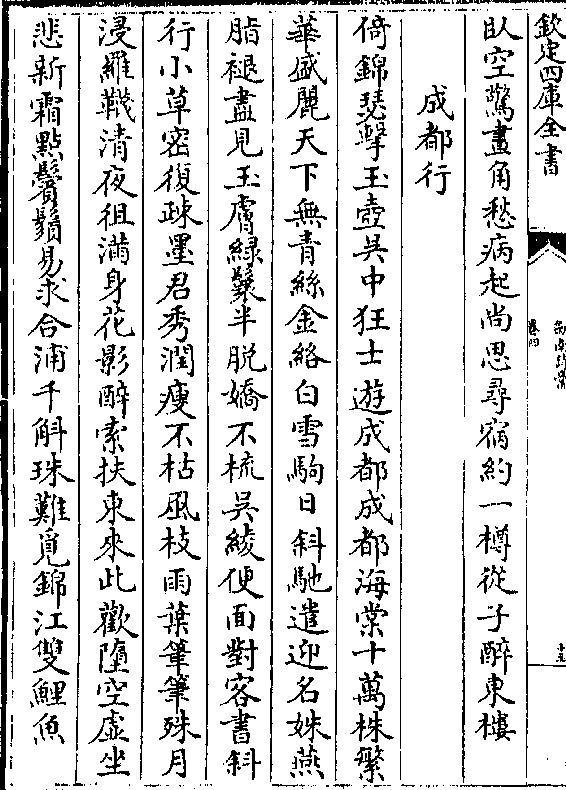 欽定四庫全書
卷四
臥空驚畫角愁病起尚思尋宿約一樽從子醉東樓
成都行
倚錦瑟擊玉壺吳中狂士遊成都成都海棠十萬株繁
華盛麗天下無青絲金絡白雪駒日斜馳遣迎名姝燕
脂褪盡見玉膚綠鬟半脫嬌不梳吳綾便面對客書斜
行小草密復疎墨君秀潤瘦不枯風枝雨葉筆筆殊月
浸羅韈清夜徂滿身花影醉索扶東來此歡墮空虛坐
悲新霜點鬢鬚易求合浦千斛珠難覓錦江雙鯉魚